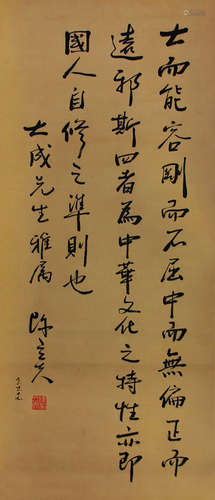 大而能容剛而不屈中而無偏正而
遠邪斯四者為中華文化之特性亦即
國人自修之準則也
大成先生雅属
陳立夫